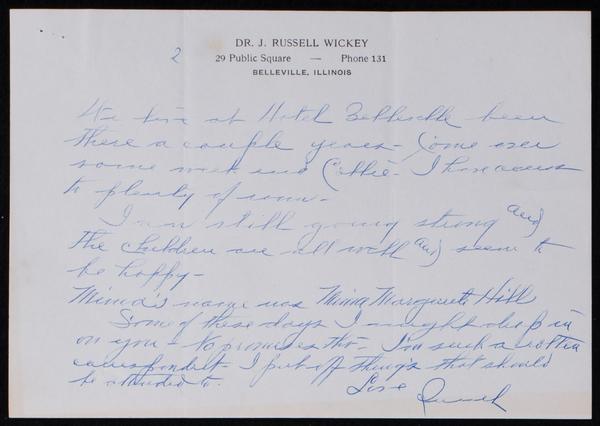 DR. J. RUSSELL WICKEY
2 29 Public Square — Phone 131
BELLEVILLE, ILLINOIS
We live at Hotel Belleville been
there a couple years - Come over
some week end Cottie - I have access
to plenty of room -
I am still going strong and
the children are all well and seem to
be happy -
Mima's name was Mima Marguerite Hill
Some of these days I might drop in
on you - No promises tho - I'm such a rotten
correspondent - I put off things that should
be attended to.
Love Russell